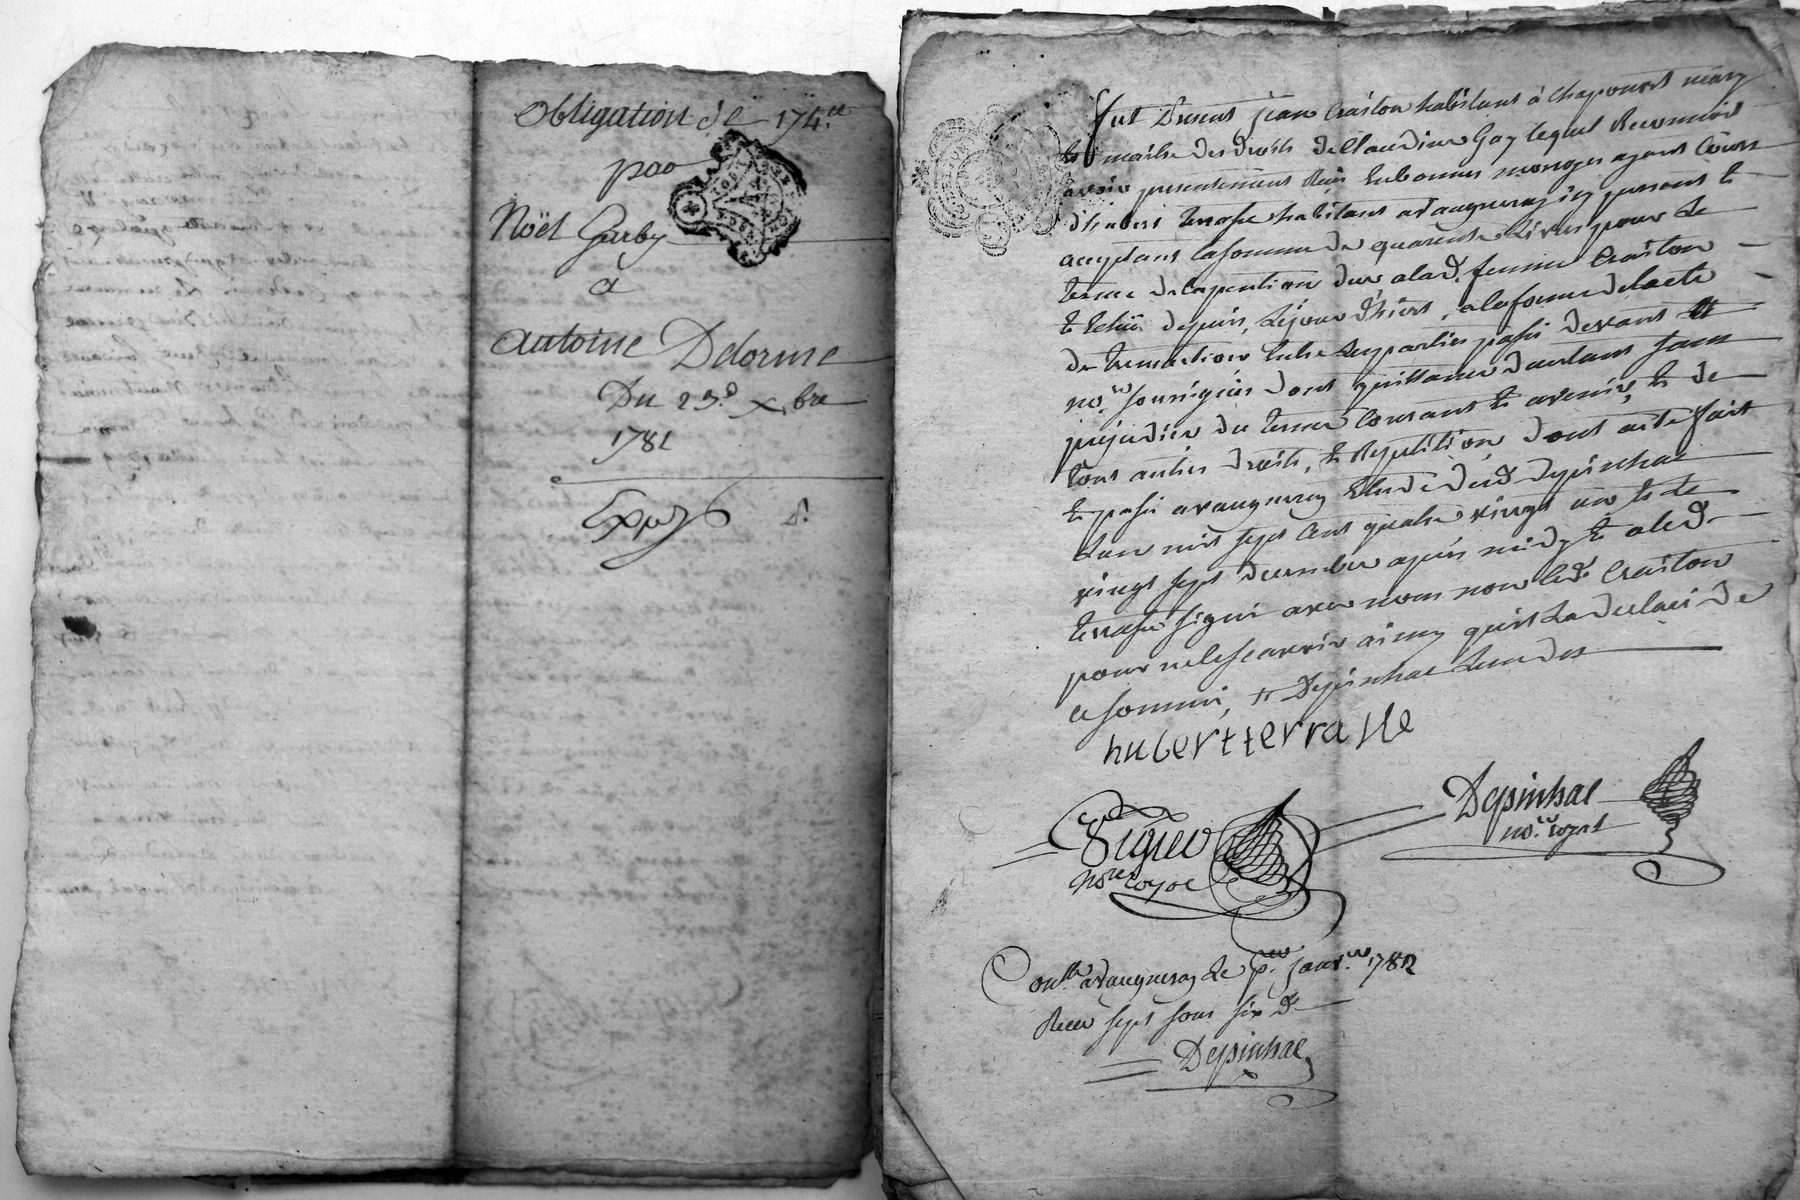 Obligation de 174.tt
par
Noël Gurby
a
Antoine Delorme
Du 29.e Xbre
1781
Expéd
fut présent jean Craiston habitant à Chaponost mary
et maitre des droits de Claudine Gay lequel Reconnoit
avoir presentement Reçu en bonnes monoyes ayant Cours
d'hubert terrasse habitant a vaugneray icy present et
acceptant la somme de quarante Livres pour Le
terme de la pention due a lad. femme Craiston
et Echu depuis Le jour d'hiert, a la forme de lacte
de transaction entre Les parties passé devant
no.re soussigné dont quittance d'autant sans
préjudice du terme Courant et avenir, et de
tous autres droits, et Répétition, dont acte fait
et passé a vaugneray Etude dud. Depinhac
Lan mil sept Cent quatre vingt un et le
vingt sept decembre après midy et a led.
terrasse signé avec nous non led. Craiston
pour ne le scavoir ainsy qu'il La declaré de
ce sommé, Depinhac
hubert terrasse
Depinhac
no.re royal
no.re royal
Con.llé a vaugneray Le p.er janv.er 1782
Recu sept sous six d.
Depinhac